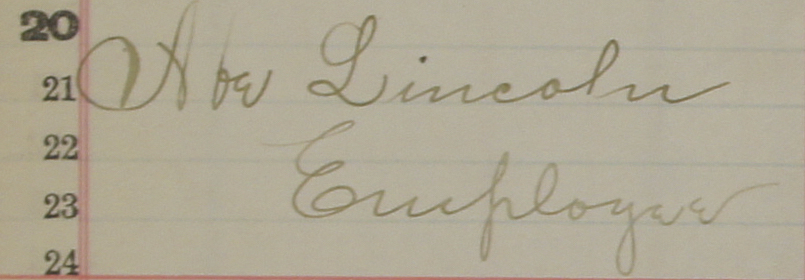 20
21 Abe Lincoln
22
23 Employee
24